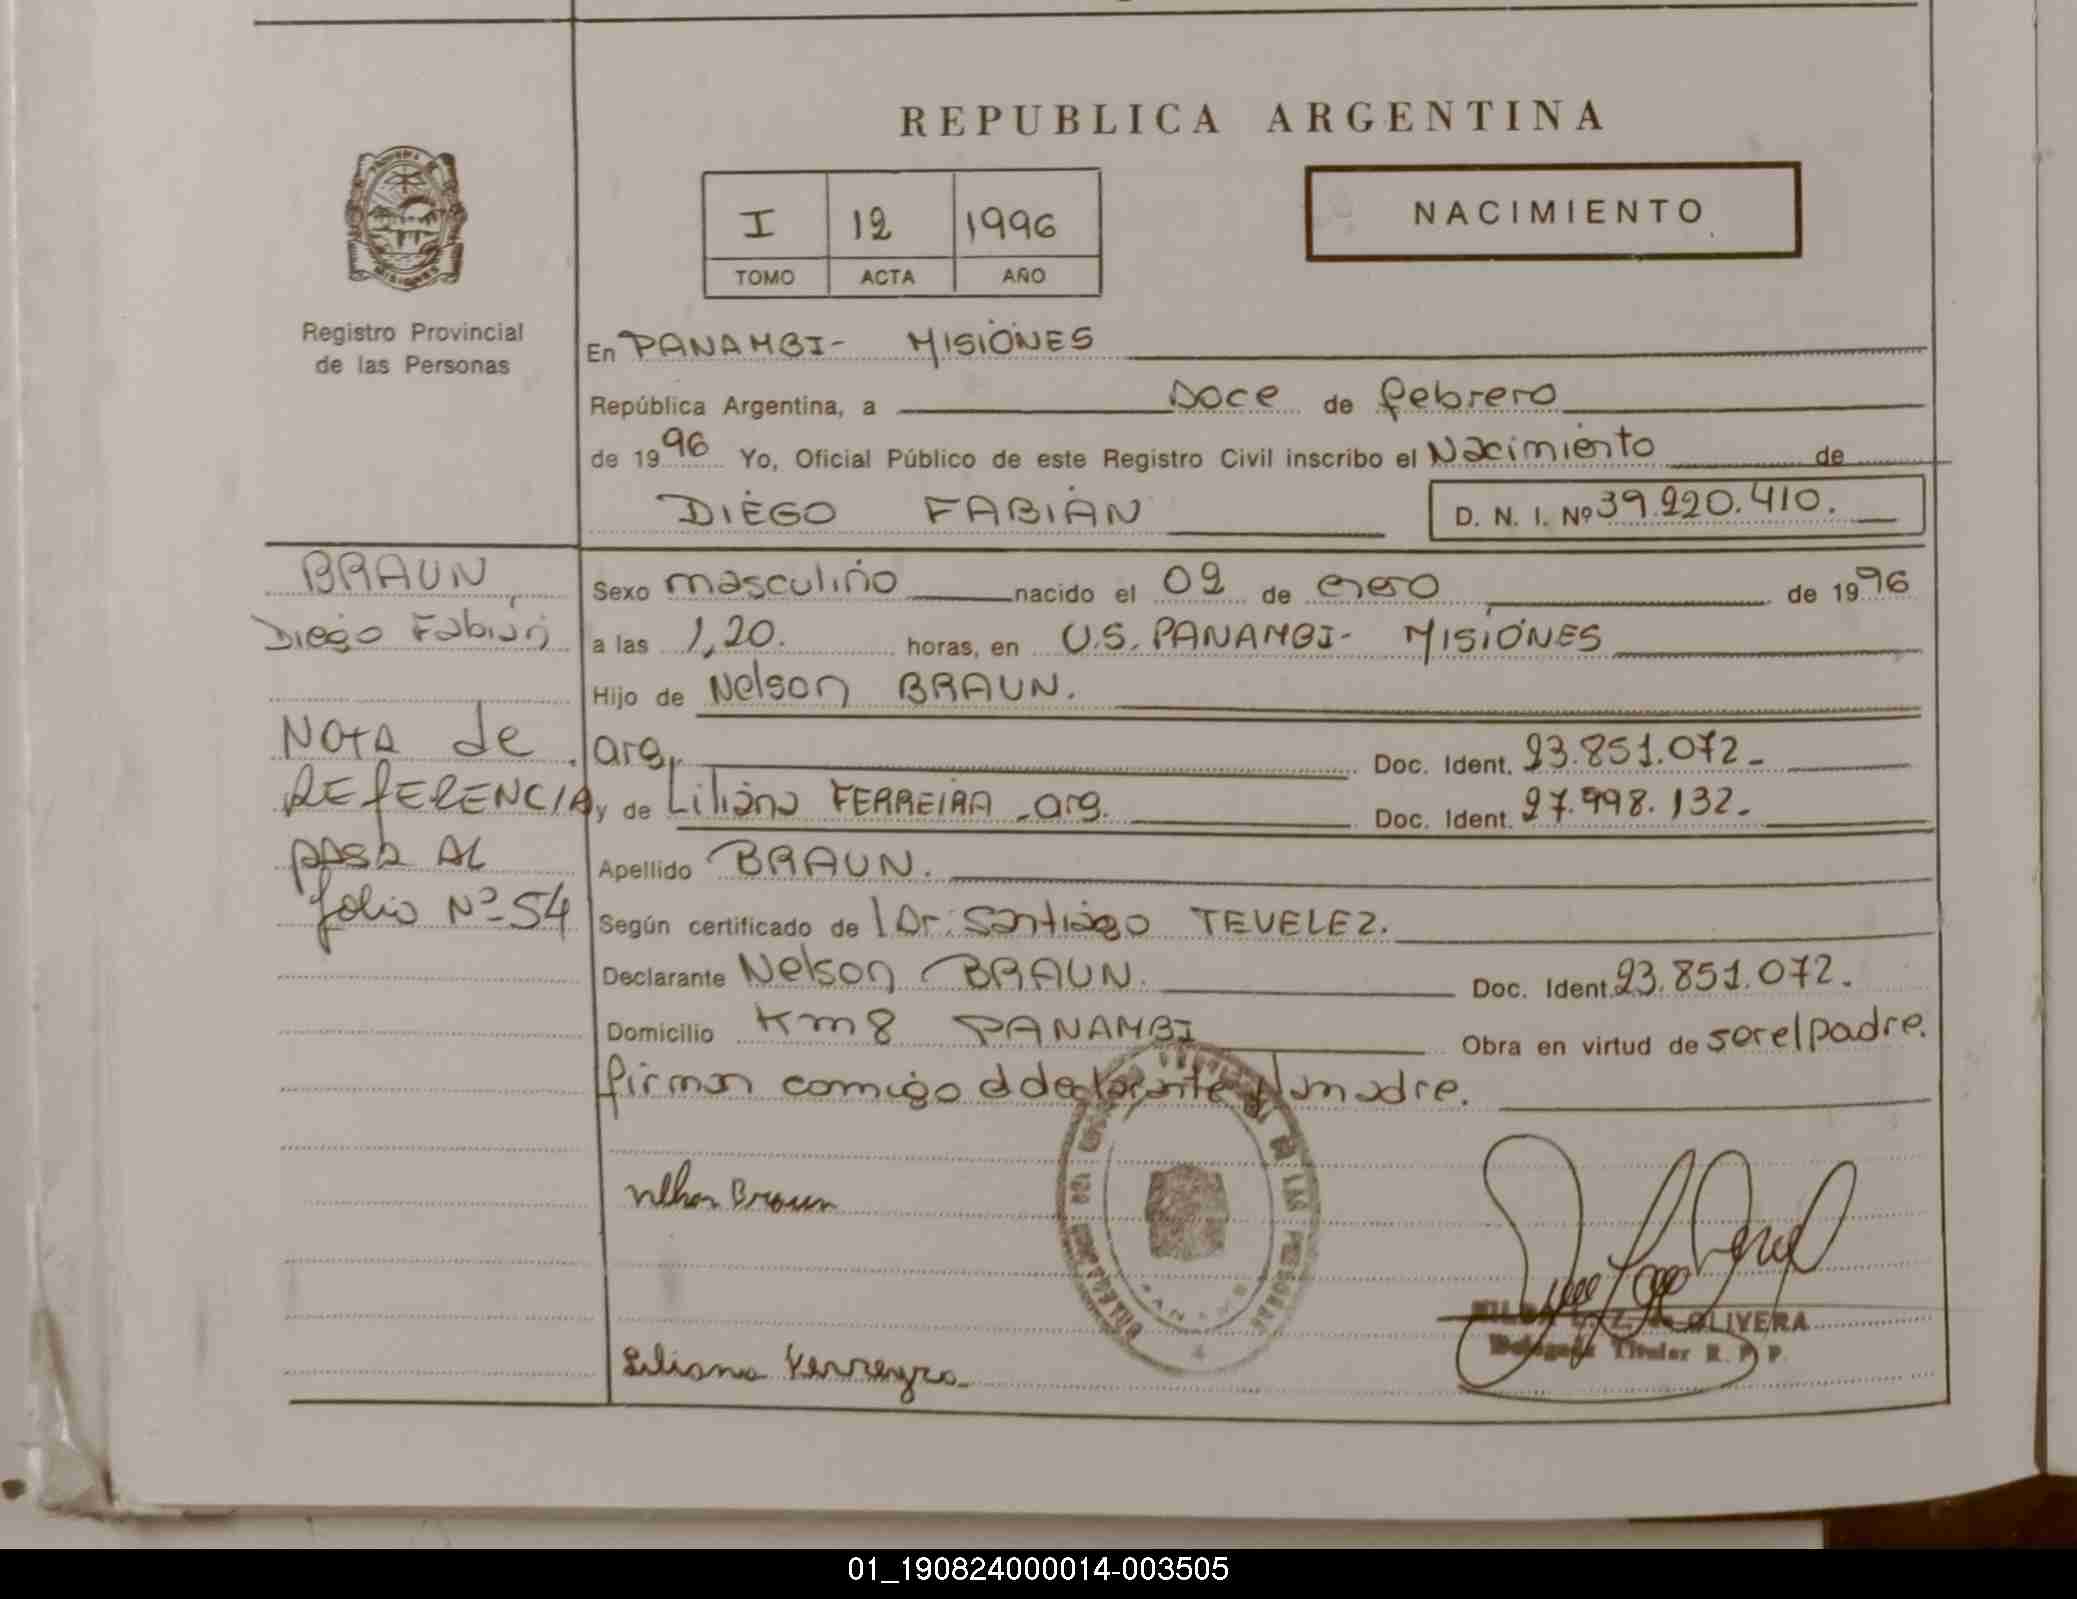 REPUBLICA ARGENTINA
NACIMIENTO
I 12 1996
TOMO ACTA AÑO
Registro Provincial
de las Personas
En PANAMBI- MISIONES
República Argentina, a Doce de febrero
de 1996 Yo, Oficial Público de este Registro Civil inscribo el Nacimiento de
DIEGO FABIAN D. N. I. Nº 39.220.410.
BRAUN
Diego Fabián
Sexo masculino nacido el 02 de enero de 1996
a las 1,20. horas, en U.S. PANAMBI- MISIONES
Hijo de Nelson BRAUN.
arg. Doc. Ident. 23.851.072-
y de Liliana FERREIRA -arg. Doc. Ident. 27.998.132-
NOTA de
REFERENCIA
PASA AL
folio Nº 54
Apellido BRAUN.
Según certificado de l Dr. Santiago TEVELEZ.
Declarante Nelson BRAUN. Doc. Ident. 23.851.072.
Domicilio Km 8 PANAMBI Obra en virtud de ser el padre.
firman comigo el declarante y la madre.
Braun
Liliana Ferreyra
OLIVERA
Titular R. P. P.
DE LAS PERSONAS
01_190824000014-003505